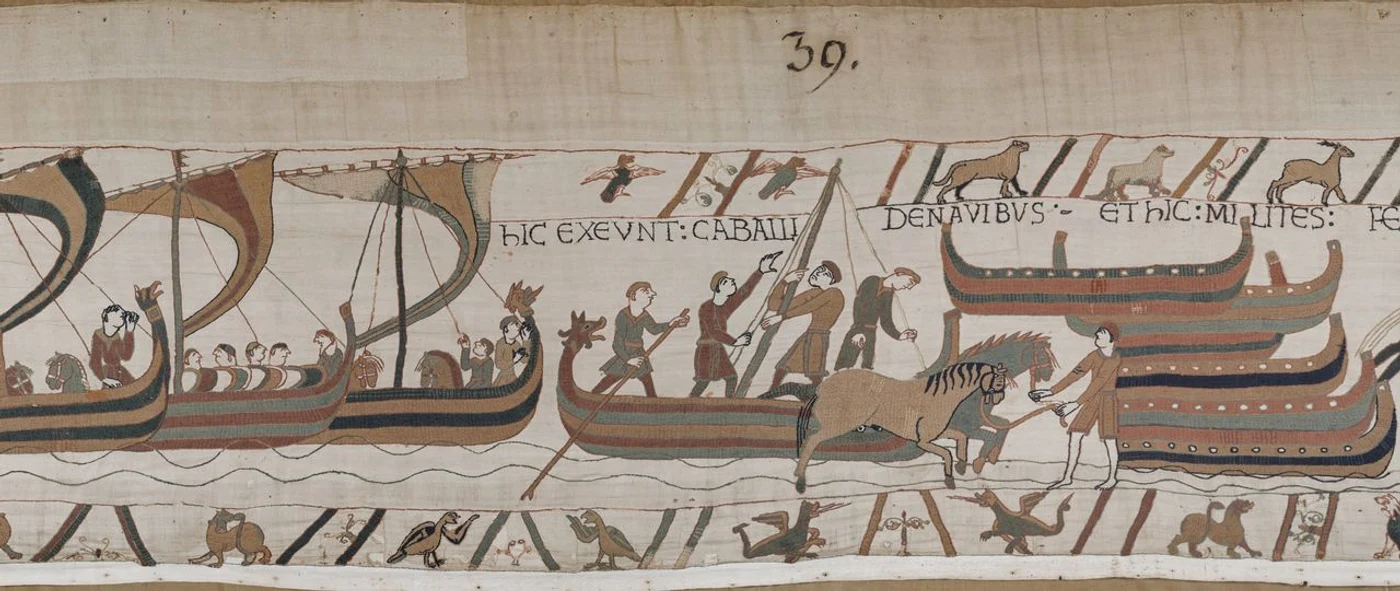 39.
hIC EXEVNT: CABALLI DENAVIBVS :- ET hIC: MILITES: FE